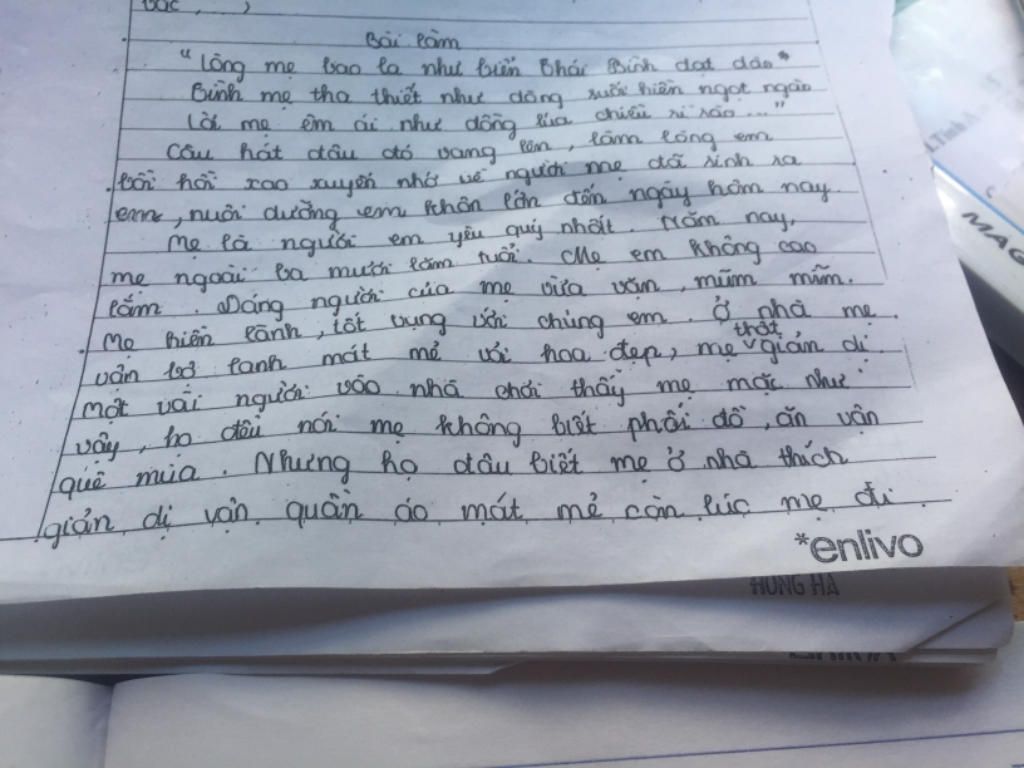 Bài làm
“Lòng mẹ bao la như biển Thái Bình dạt dào"
Tình mẹ tha thiết như dòng suối hiền ngọt ngào
Lời mẹ êm ái như đồng lúa chiều rì rào..."
Câu hát đâu đó vang lên, lắm lòng em
bồi hồi xao xuyến nhớ về người mẹ đã sinh ra
em, nuôi dưỡng em khôn lớn đến ngày hôm nay.
Mẹ là người em yêu quý nhất. Năm nay,
mẹ ngoài ba mươi lăm tuổi. Mẹ em không cao
lắm. Dáng người của mẹ vừa vặn, mũm mĩm.
Mẹ hiền lành, tốt bụng với chúng em. Ở nhà mẹ
vận bộ lanh mát mẻ với hoa đẹp, mẹ thật giản dị.
Một vài người vào nhà chơi thấy mẹ mặc như
vậy, họ đều nói mẹ không biết phối đồ, ăn vận
quê mùa. Nhưng họ đâu biết mẹ ở nhà thích
giản dị vận quần áo mát mẻ còn lúc mẹ đi
*enlivo
HUNG HA
MAG